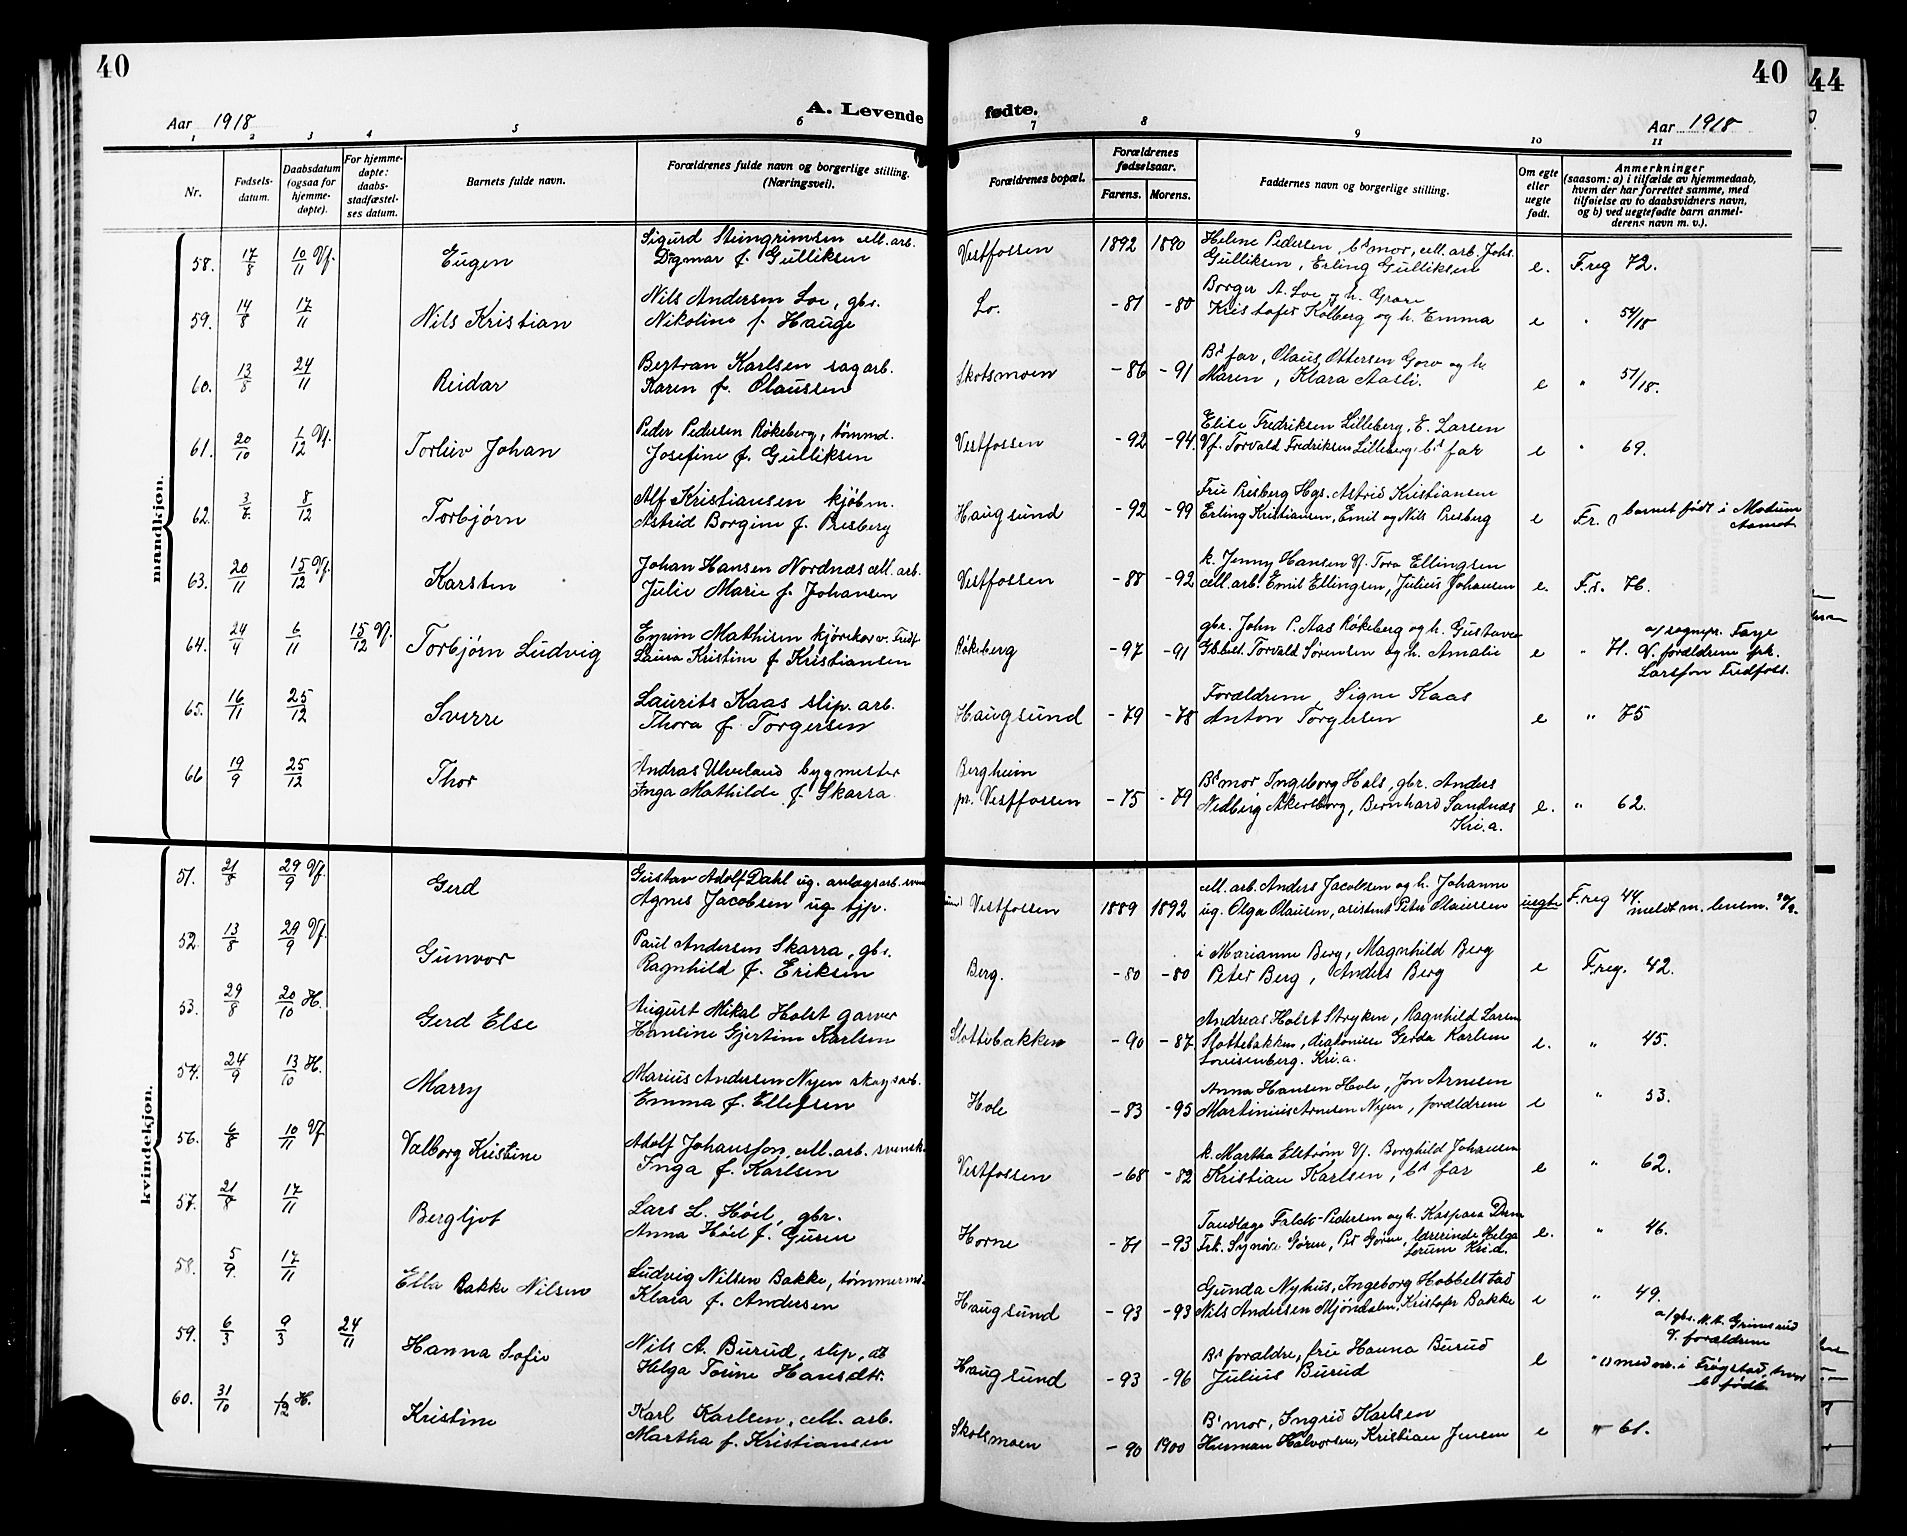 40
40
44
A. Levende fødte.
Aar 1918
Aar 1918
1 2 3 4 5 6 7 8 9 10 11
Nr.
Fødsels-
datum.
Daabsdatum
(ogsaa for
hjemme-
døpte).
For hjemme-
døpte:
daabs-
stadfæstel-
ses datum.
Barnets fulde navn.
Forældrenes fulde navn og borgerlige stilling.
(Næringsvei).
Forældrenes bopæl.
Forældrenes
fødselsaar.
Farens. Morens.
Faddernes navn og borgerlige stilling.
Om egte
eller
uegte
født.
Anmerkninger
(saasom: a) i tilfælde av hjemmedaab,
hvem der har forrettet samme, med
tilføielse av to daabsvidners navn,
og b) ved uegtefødte barn anmel-
derens navn m. v.).
mandkjøn.
58. 17/8 10/11 Vf. Eugen
Sigurd Steingrimsen cell. arb.
Dagmar f. Gulliksen
Vestfossen 1892 1890
Helene Pedersen, bs mor, cell. arb. Johs.
Gulliksen, Erling Gulliksen
e. F.reg 72.
59. 14/8 17/11 Nils Kristian
Nils Andersen Loe, gbr.
Nikoline f. Hauge
Lo. -81 -80
Borger A. Loe og h. Grace
Kristofer Kolberg og h. Emma
e " 54/18
60. 13/5 24/11 Reidar
Bertran Karlsen sagarb.
Karen f. Olaussen
Skotsmoen -86 -91
Bs far, Olaus Ottersen Goro og h.
Maren, Klara Aasli.
e " 51/18.
61. 20/10 1/12 Vf. Torleiv Johan
Peder Pedersen Røkeberg, tømmd.
Josefine f. Gulliksen
Vestfossen -92 -94
Elise Fredriksen Lilleberg, E. Larsen
Vf. Torvald Fredriksen Lilleberg, bs far
e " 69.
62. 3/6 8/12 Torbjørn
Alf Kristiansen kjøbm.
Astrid Borgine f. Presberg
Haugsund -92 -99
Fru Presberg Hgs. Astrid Kristiansen
Erling Kristiansen, Emil og Nils Presberg
e F.r. () barnet født i Modum
Aamot
63. 20/11 15/12 Vf. Karsten
Johan Hansen Nordnæs cell. arb.
Julie Marie f. Johansen
Vestfossen -88 -92
k. Jenny Hansen Vf. Tora Ellingsen
cell. arb. Emil Ellingsen, Julius Johansen
e. F.r. 76.
64. 24/4 6/11 15/12 Vf. Torbjørn Ludvig
Einim Mathisen kjørekar v. Fredf.
Laura Kristine f. Kristiansen
Røkeberg -97 -91
gbr. John P. Aas Røkeberg og h. Gustava
Torvald Sørensen og h. Amalie
e " 71. a/ sognepr. Faye
V. forældrene frk.
Larsson Fredfoss.
65. 16/11 25/12 Sverre
Laurits Kaas slip. arb.
Thora f. Torgersen
Haugsund -79 -78
Forældrene, Signe Kaas
Anton Torgersen
e " 75
66 19/9 25/12 Thor
Andras Ulveland bygmester
Inga Mathilde f. Skarra
Bergheim
pr. Vestfossen -75 -79
Bs mor, Ingeborg Hals, gbr. Anders
Nedberg Akersborg, Bernhard Sandnæs
Kri.a.
e. " 62.
kvindekjøn.
51. 21/8 29/9 Vf. Gerd
Gustav Adolf Dahl ug. anlægsarb. svensk
Agnes Jacobsen ug tjp.
Vestfossen 1889 1892
cell. arb. Anders Jacobsen og h. Johanne
ug. Olga Olausen, assistent Peter Olaussen
uegte F.reg 44.
meldt m. lensm.
52. 13/8 29/9 Vf. Gunvor
Paul Andersen Skarra, gbr.
Ragnhild f. Eriksen
Berg. -80 -80
i Marianne Berg, Magnhild Berg
Peter Berg, Anders Berg
e F.reg. 42.
53. 29/8 20/10 H. Gerd Else
August Mikal Holst garver
Hansine Gjertine Karlsen
Slottebakken -90 -87
Andreas Holst Stryken, Ragnhild Larsen
Slottebakken, diakonisse Gerda Karlsen
Lovisenberg. Kri.a.
e. " 45.
54. 24/9 13/10 H. Marry
Marius Andersen Nyen skogsarb.
Emma f. Ellefsen
Hole -83 -95
Anna Hansen Hole, Jon Arnesen
Martinius Arnesen Nyen, forældrene
e " 53.
56. 6/8 10/11 Vf Valborg Kristine
Adolf Johansson, cell. arb. svensk.
Inga f. Karlsen
Vestfossen -68 -82
k. Martha Elstrøm Vf. Borghild Johansen
Kristian Karlsen, bs far
e " 62.
57. 21/8 17/11 Bergljot
Lars L. Høil, gbr.
Anna Høil f. Guren
Horne -71 -93
Tandlæge Falck-Pedersen og h. Kaspara Drm
Frk. Synøve Gøren, Per Gøren, lærerinde Helga
Lorum Krsd.
e. " 46.
58. 5/9. 17/11 Ella Bakke Nilsen
Ludvig Nilsen Bakke, tømmermd.
Klara f. Andersen
Haugsund -93 -93
Gunda Nyhus, Ingeborg Hobbelstad
Nils Andersen Mjøndalen, Kristofer Bakke
e " 49.
59. 6/3 9/3 24/11 Hanna Sofie
Nils A. Burud, slip. arb
Helga Torine Hansdtr.
Haugsund -93 -96
Bs foraldre, fru Hanna Burud
Julius Burud
e a/gbr. A. A. Grimsrud
V. forældrene
" () med nr. i Trøgstad, hvor
b. født.
60. 31/10 1/12 H. Kristine
Karl Karlsen, cell. arb.
Martha f. Kristiansen
Skotsmoen -90 1900
Bs mor, Ingrid Karlsen
Herman Halvorsen, Kristian Jensen
e " 61.